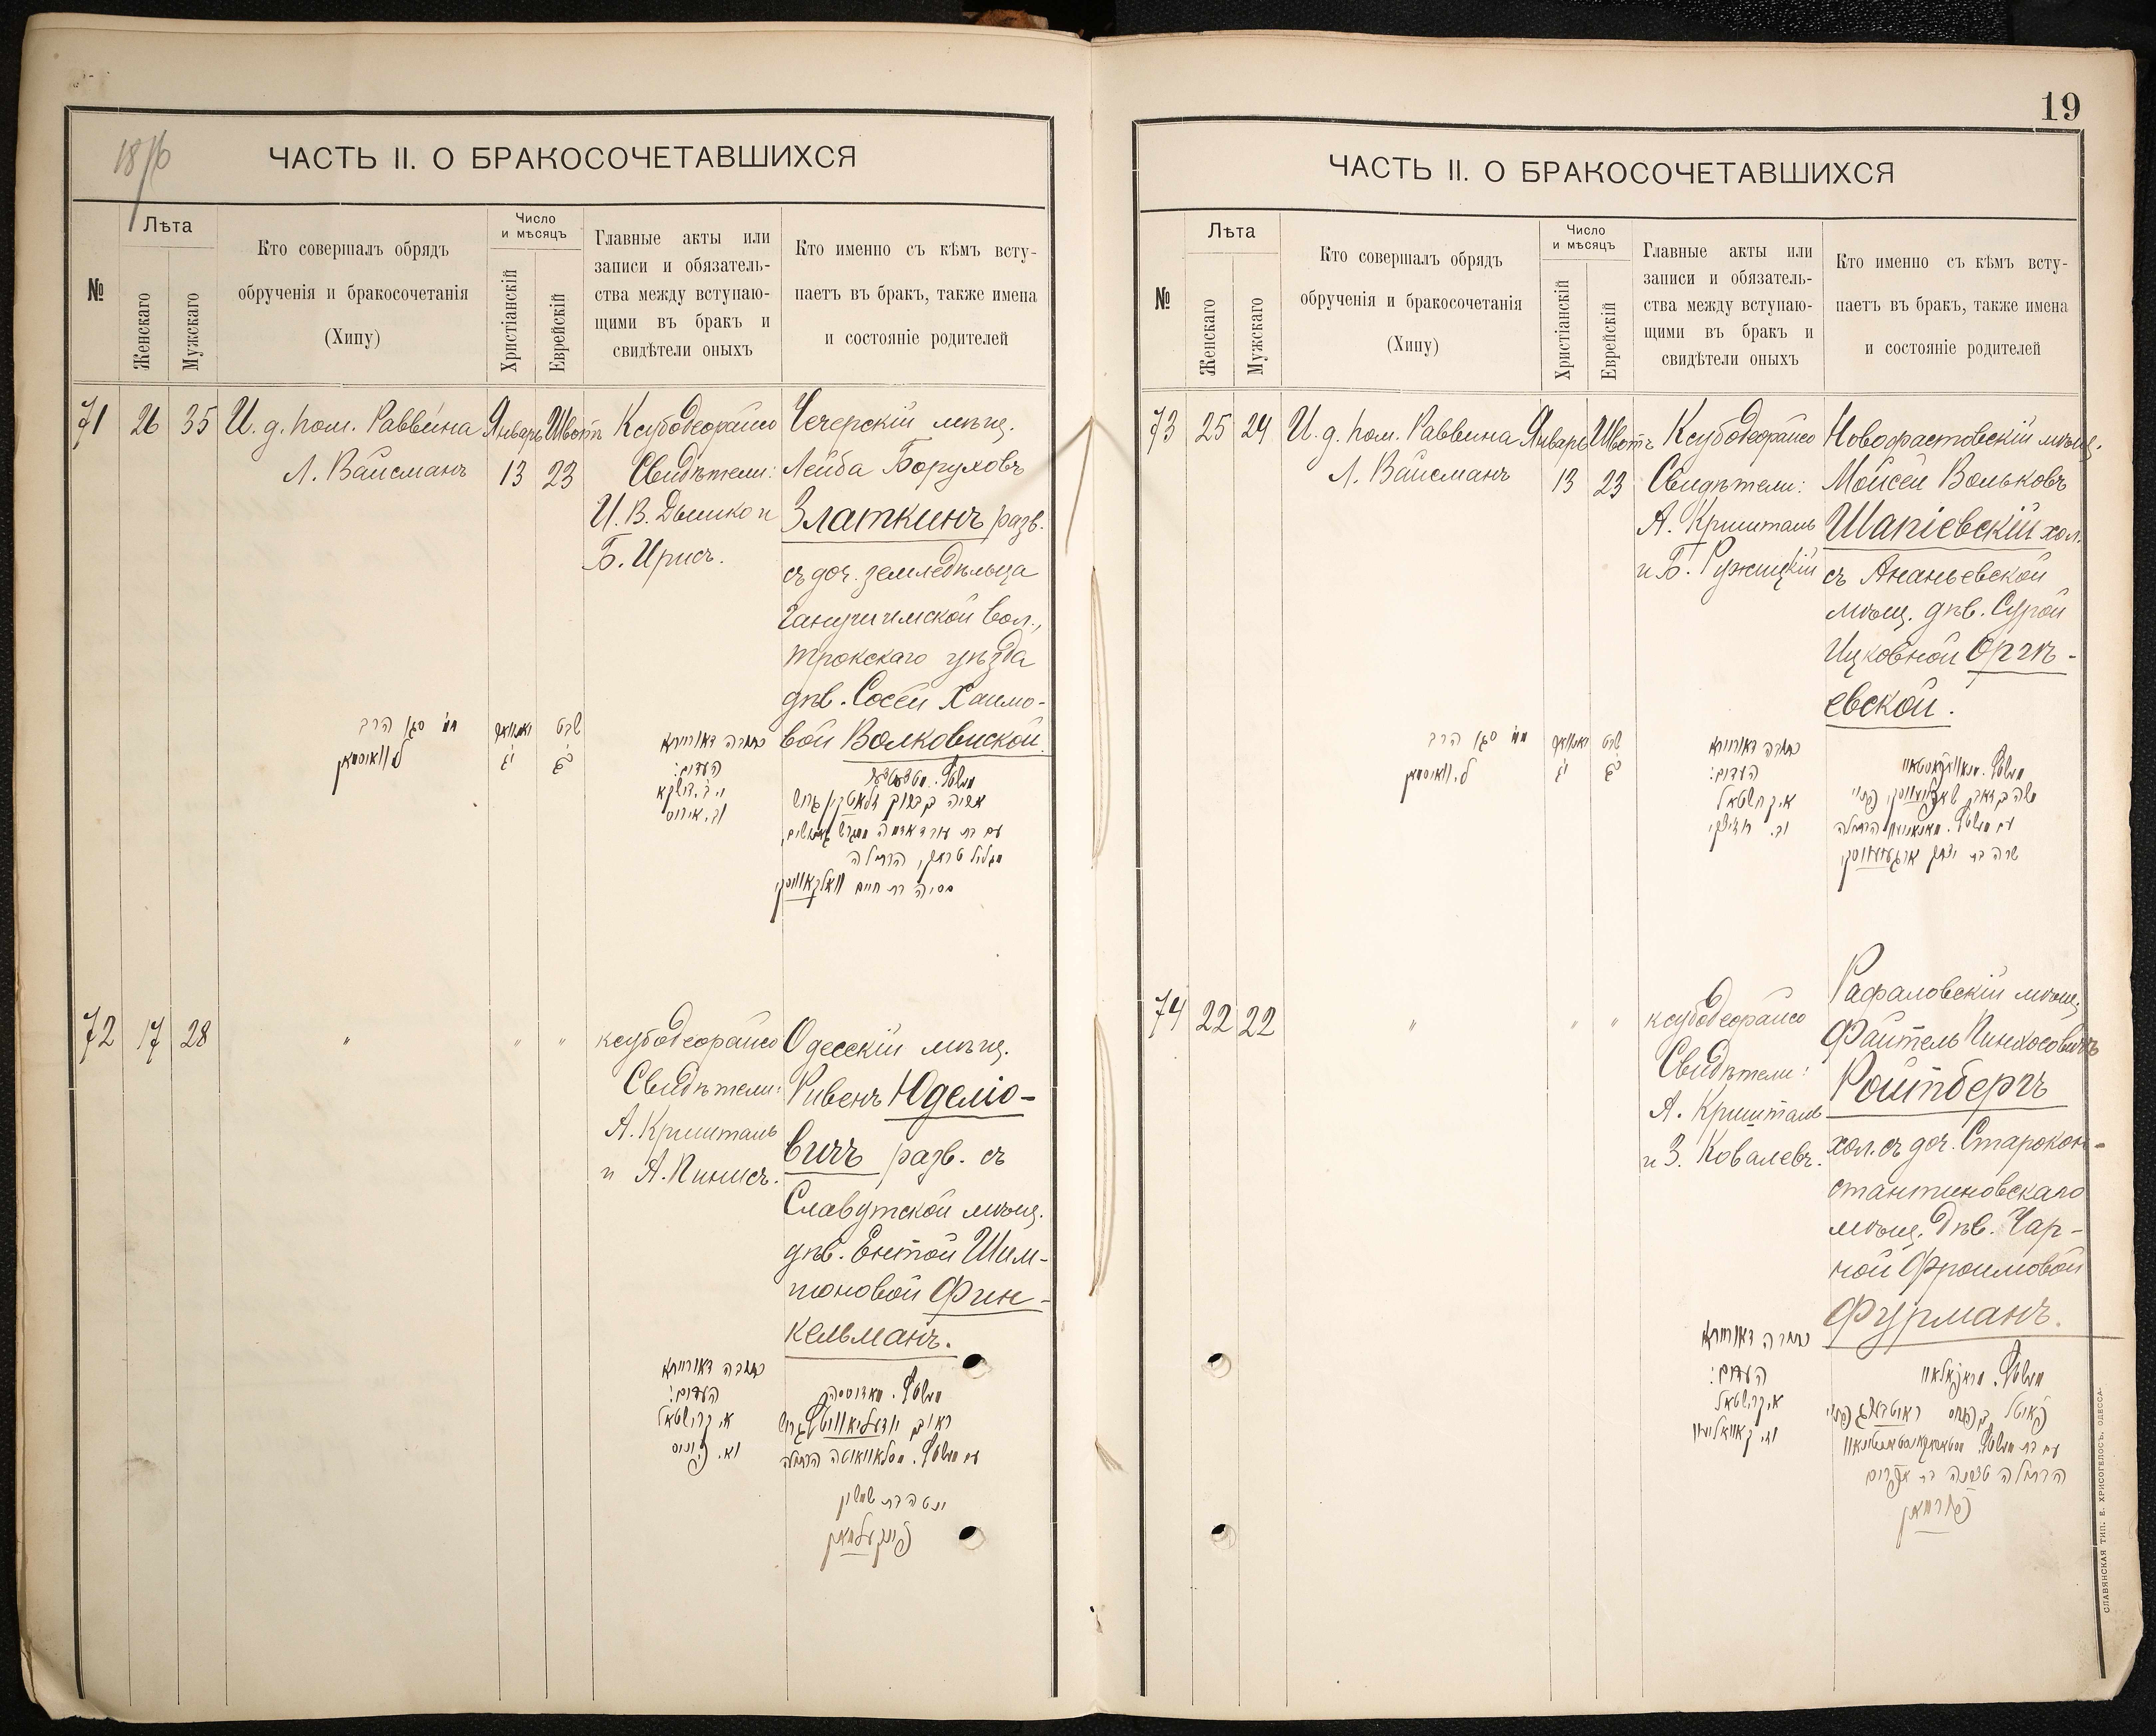 1876
ЧАСТЬ II. О БРАКОСОЧЕТАВШИХСЯ
№
Лѣта
Женскаго
Мужскаго
Кто совершалъ обрядъ
обрученія и бракосочетанія
(Хипу)
Число
и мѣсяцъ
Христіанскій
Еврейскій
Главные акты или
записи и обязатель-
ства между вступаю-
щими въ бракъ и
свидѣтели оныхъ
Кто именно съ кѣмъ всту-
паетъ въ бракъ, также имена
и состояніе родителей
71
26
35
И. д. пом. Раввина
Л. Вайсманъ
Январь
13
Шватъ
23
Ксубодеорайсо
Свидѣтели:
И. В. Дышко и
Б. Ирисъ.
Чечерскій мѣщ.
Лейба Боруховъ
Златкинъ разв.
съ доч. земледѣльца
вол.,
Трокскаго уѣзда
дѣв. Сосей Хаимо-
вой Волковиской.
סגן הרב
ל. וואיסמאן
יאנואר
י״ג
שבט
כ״ג
כתובה דאורייתא
העדים:
72
17
28
"
"
"
ксубодеорайсо
Свидѣтели:
А. Кришталь
и А. Пинисъ.
Одесскій мѣщ.
Рувенъ Юделіо-
вичъ разв. съ
Славутской мѣщ.
дѣв. Ентой Шим-
шоновой Фин-
кельманъ.
כתובה דאורייתא
העדים:
א. קרישטאל
וא. פיניס
יענטה בת שמשון
פינקעלמאן
19
ЧАСТЬ II. О БРАКОСОЧЕТАВШИХСЯ
№
Лѣта
Женскаго
Мужскаго
Кто совершалъ обрядъ
обрученія и бракосочетанія
(Хипу)
Число
и мѣсяцъ
Христіанскій
Еврейскій
Главные акты или
записи и обязатель-
ства между вступаю-
щими въ бракъ и
свидѣтели оныхъ
Кто именно съ кѣмъ всту-
паетъ въ бракъ, также имена
и состояніе родителей
73
25
24
И. д. пом. Раввина
Л. Вайсманъ
Январь
13
Шватъ
23
Ксубодеорайсо
Свидѣтели:
А. Кришталь
и Б. Ружицкій
Новорастовскій мѣщ.
Мойсей Вольковъ
Шапіевскій хол.
съ Ананьевской
мѣщ. дѣв. Сурой
Ицковной Оргѣ-
евской.
סגן הרב
ל. וואיסמאן
יאנואר
י״ג
שבט
כ״ג
כתובה דאורייתא
העדים:
א. קרישטאל
74
22
22
"
"
"
ксубодеорайсо
Свидѣтели:
А. Кришталь
и З. Ковалевъ.
Рафаловскій мѣщ.
Файтель Пинхосовичъ
Ройтбергъ
хол. съ доч. Старокон-
стантиновскаго
мѣщ. дѣв. Чар-
ной Фроимовой
Фурманъ.
כתובה דאורייתא
העדים:
א. קרישטאל
פורמאן
СЛАВЯНСКАЯ ТИП. Е. ХРИСОГЕЛОСЪ. ОДЕССА.